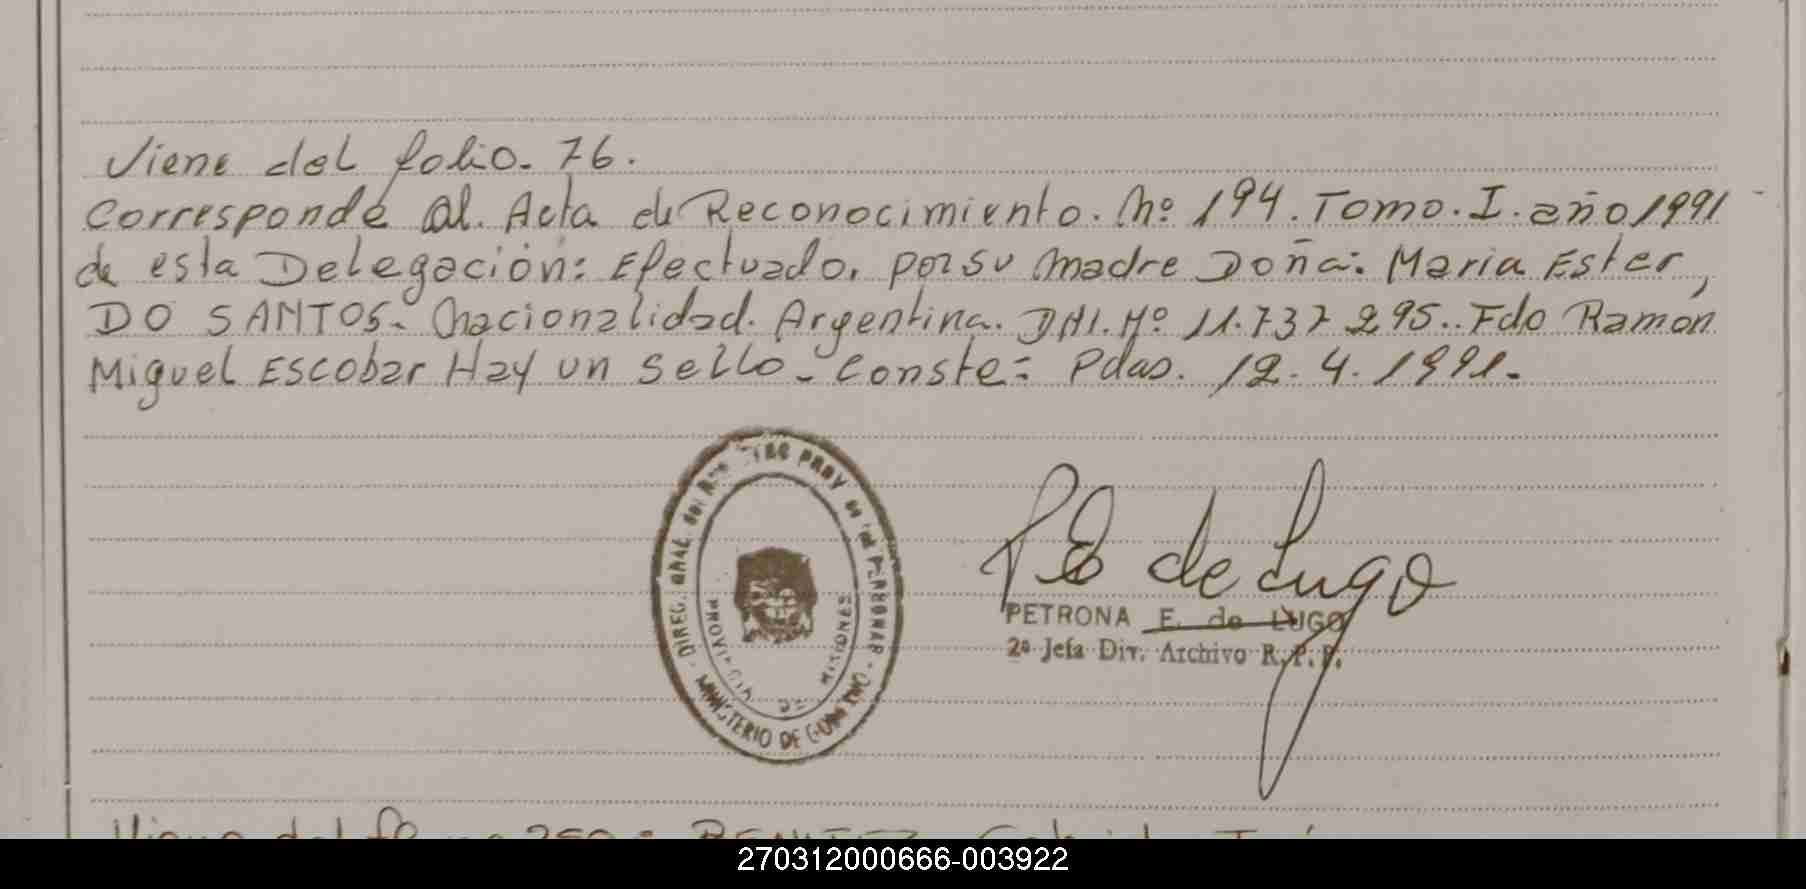 Viene del folio. 76.
Corresponde al. Acta de Reconocimiento. Nº 194. Tomo. I. año 1991
de esta Delegación: Efectuado. por su madre Doña: Maria Ester,
DO SANTOS. Nacionalidad. Argentina. DNI. Nº 11.737.295.. Fdo Ramón
Miguel Escobar Hay un sello. Conste: Pdas. 12.4.1991.
DIREC. GRAL. DEL PROV DE LAS PERSONAS - MINISTERIO DE GOBIERNO -
PROVINCIA DE MISIONES
P E de Lugo
PETRONA E. de LUGO
2ª Jefa Div. Archivo R. P. P.
Viene del
270312000666-003922